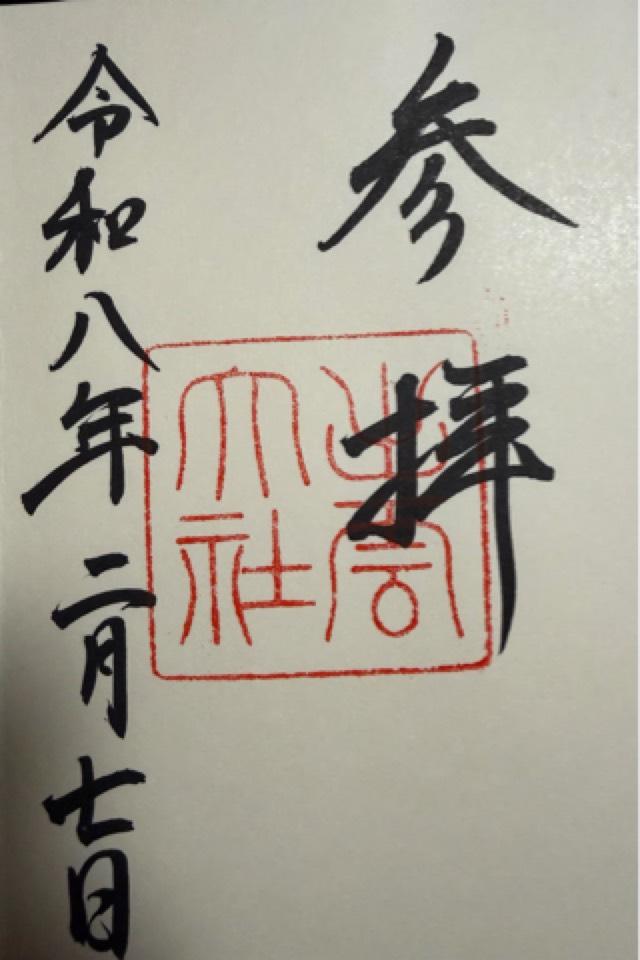 参拝
出雲
大社
令和八年二月七日